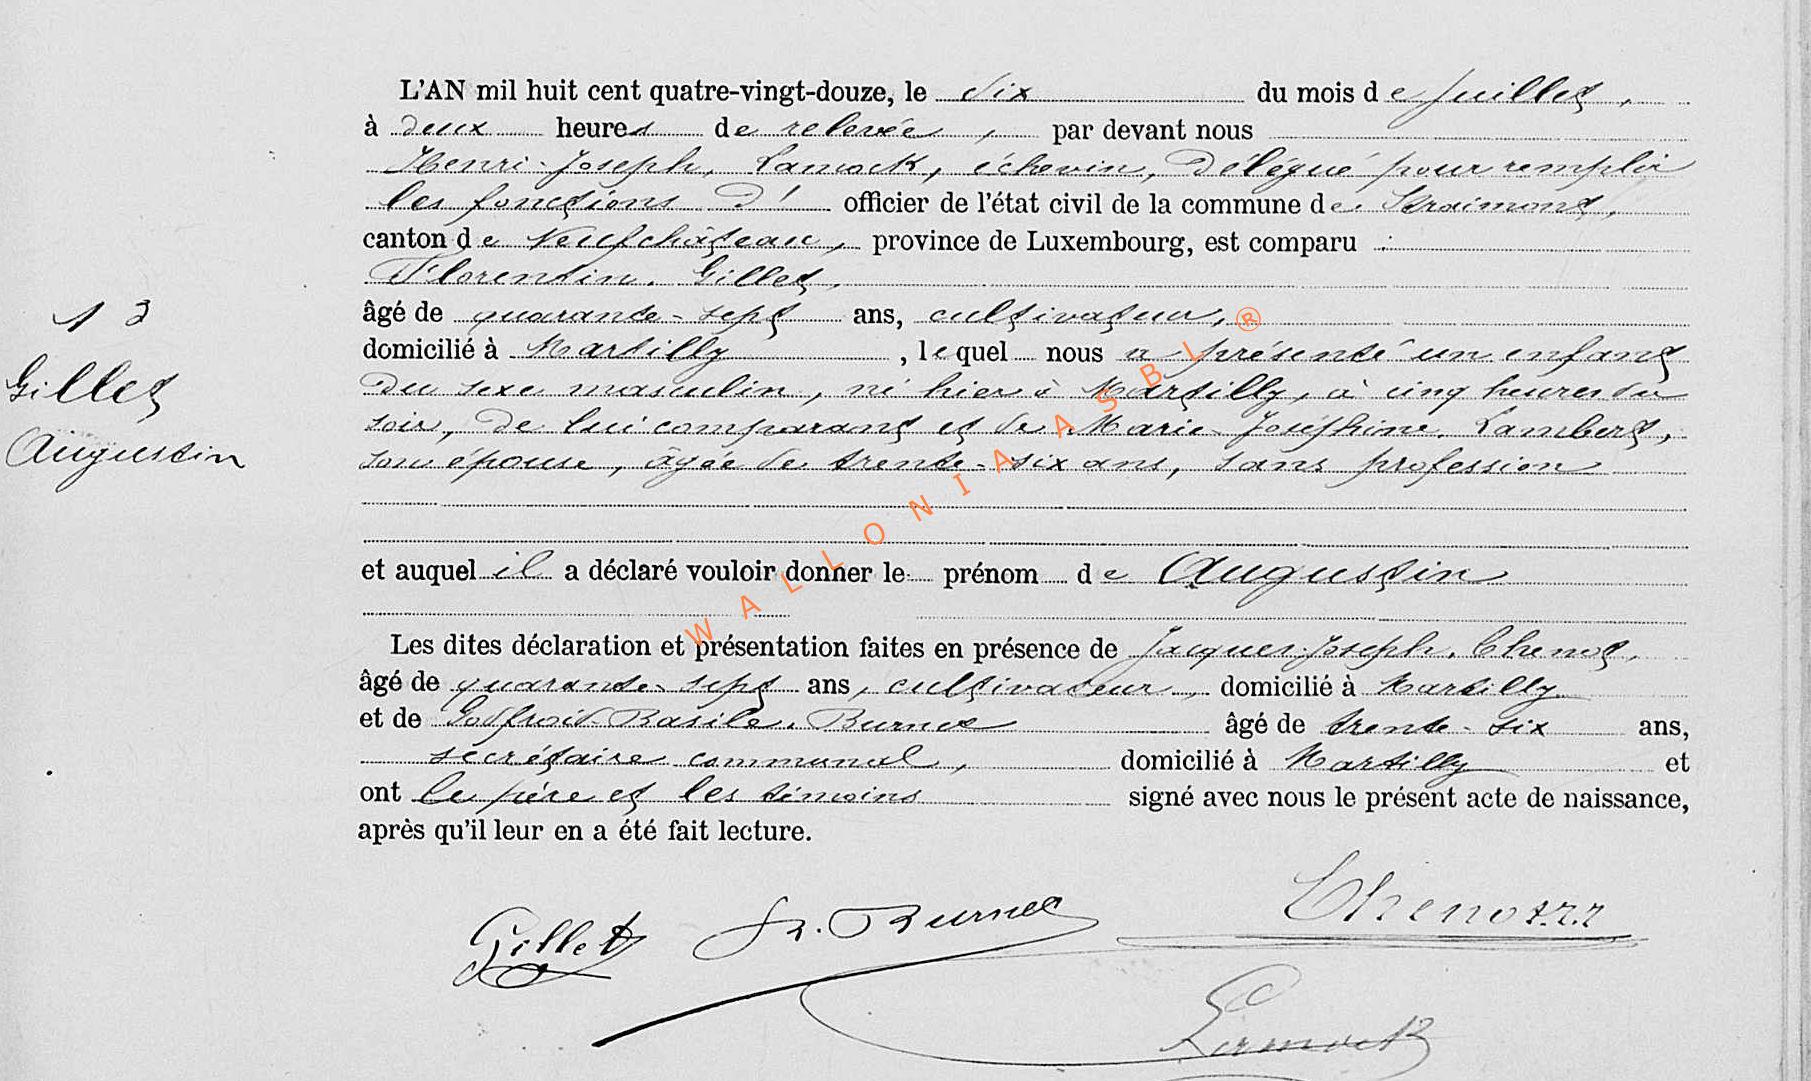 L'AN mil huit cent quatre-vingt-douze, le six du mois de juillet,
à deux heures de relevée, par devant nous
Henri-Joseph, Lamock, échevin, délégué pour remplir
les fonctions d' officier de l'état civil de la commune de Straimont,
canton de Neufchâteau, province de Luxembourg, est comparu :
Florentin, Gillet,
âgé de quarante-sept ans, cultivateur,
domicilié à Martilly, lequel nous a présenté un enfant
du sexe masculin, né hier à Martilly, à cinq heures du
soir, de lui comparant et de Marie-Joséphine, Lambert,
son épouse, âgée de trente-six ans, sans profession
et auquel il a déclaré vouloir donner le prénom de Augustin
Les dites déclaration et présentation faites en présence de Jacques-Joseph, Chenot,
âgé de quarante-sept ans, cultivateur, domicilié à Martilly
et de Godfroid-Basile, Burnet âgé de trente-six ans,
secrétaire communal, domicilié à Martilly et
ont le père et les témoins signé avec nous le présent acte de naissance,
après qu'il leur en a été fait lecture.
13
Gillet
Augustin
Gillet Burnet Chenot
WALLONIA ASBL ®